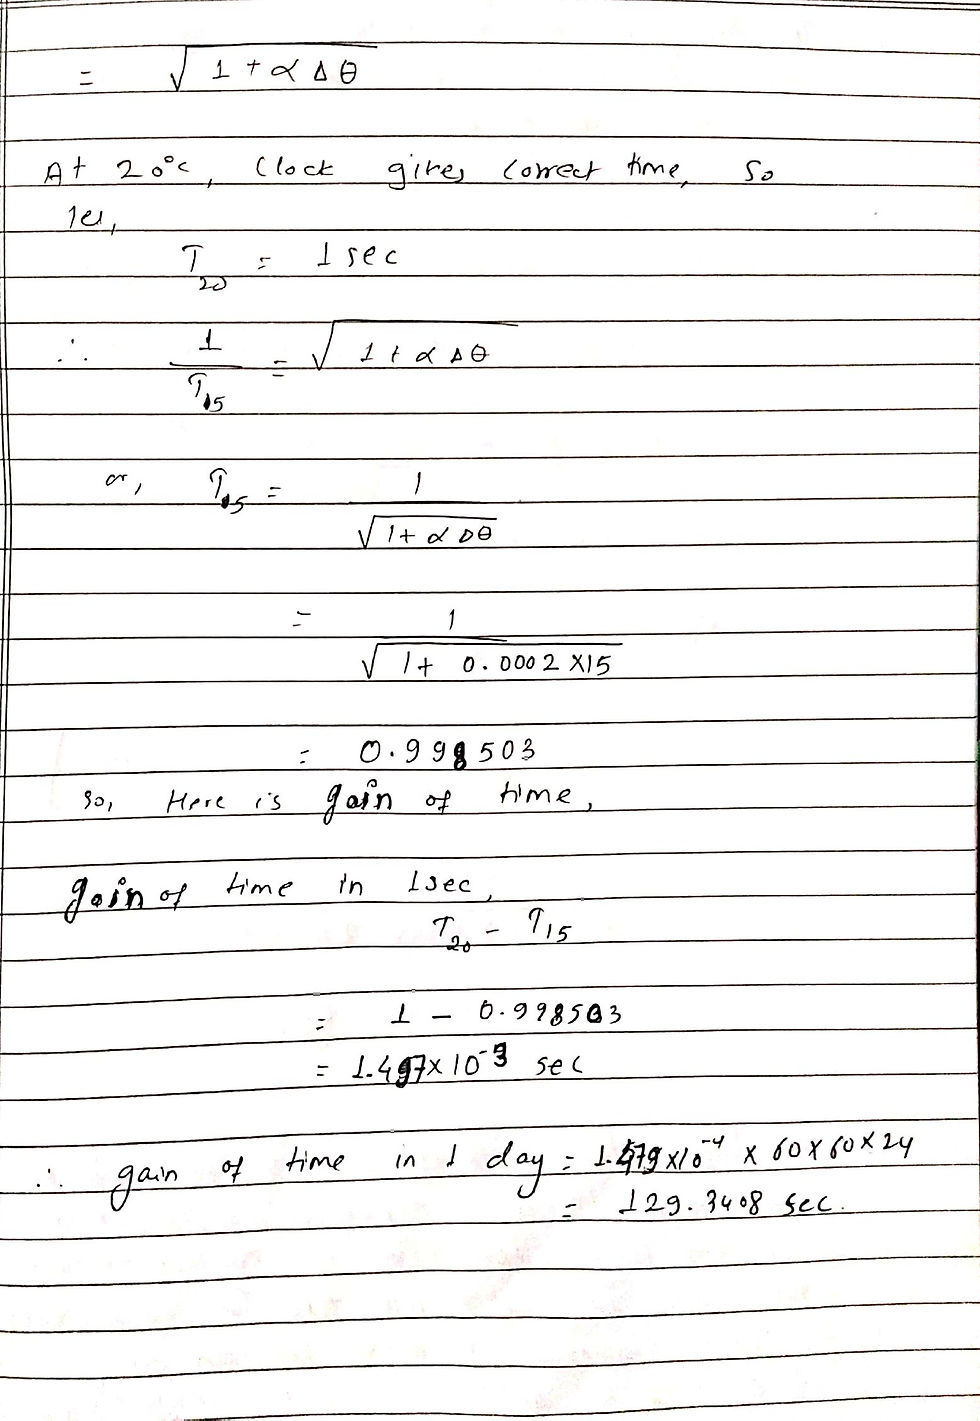 = √(1 + α Δθ)
At 20°c, Clock gives correct time, so
let,
T₂₀ = 1 sec
∴ 1/T₁₅ = √(1 + α Δθ)
or, T₁₅ = 1/√(1 + α Δθ)
= 1/√(1 + 0.0002 × 15)
= 0.998503
so, Here is gain of time,
gain of time in 1sec,
T₂₀ - T₁₅
= 1 - 0.998503
= 1.497 × 10⁻³ sec
∴ gain of time in 1 day = 1.479 × 10⁻⁴ × 60 × 60 × 24
= 129.3408 sec.